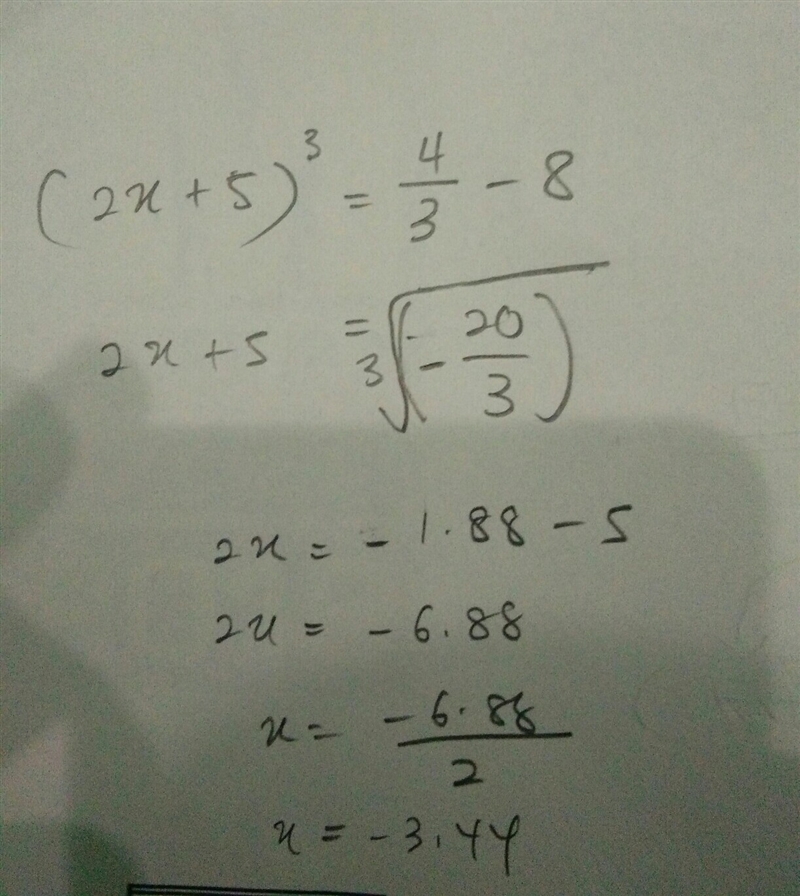 (2x + 5)³ = 4/3 - 8
2x + 5 = ³√(- 20/3)
2x = - 1.88 - 5
2x = - 6.88
x = - 6.88/2
x = - 3.44